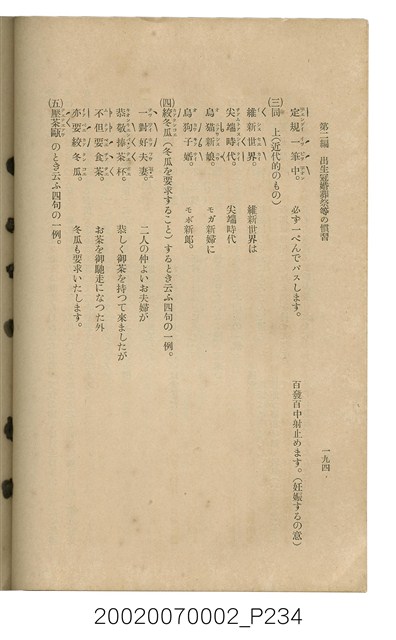 第二編　出生冠婚葬祭等の慣習　一九四
定規一筆中。　必ず一ぺんでパスします。　百發百中射止めます。(妊娠するの意)
(三)同　上(近代的のもの)
維新世界。　維新世界は
尖端時代。　尖端時代
烏猫新娘。　モガ新婦に
烏狗子婿。　モボ新郎。
(四)絞冬瓜(冬瓜を要求すること)するとき云ふ四句の一例。
一對好夫妻。　二人の仲よいお夫婦が
恭敬捧茶杯。　恭しく御茶を持つて來ましたが
不但要食茶。　お茶を御馳走になつた外
亦要絞冬瓜。　冬瓜も要求いたします。
(五)壓茶甌のとき云ふ四句の一例。
20020070002_P234